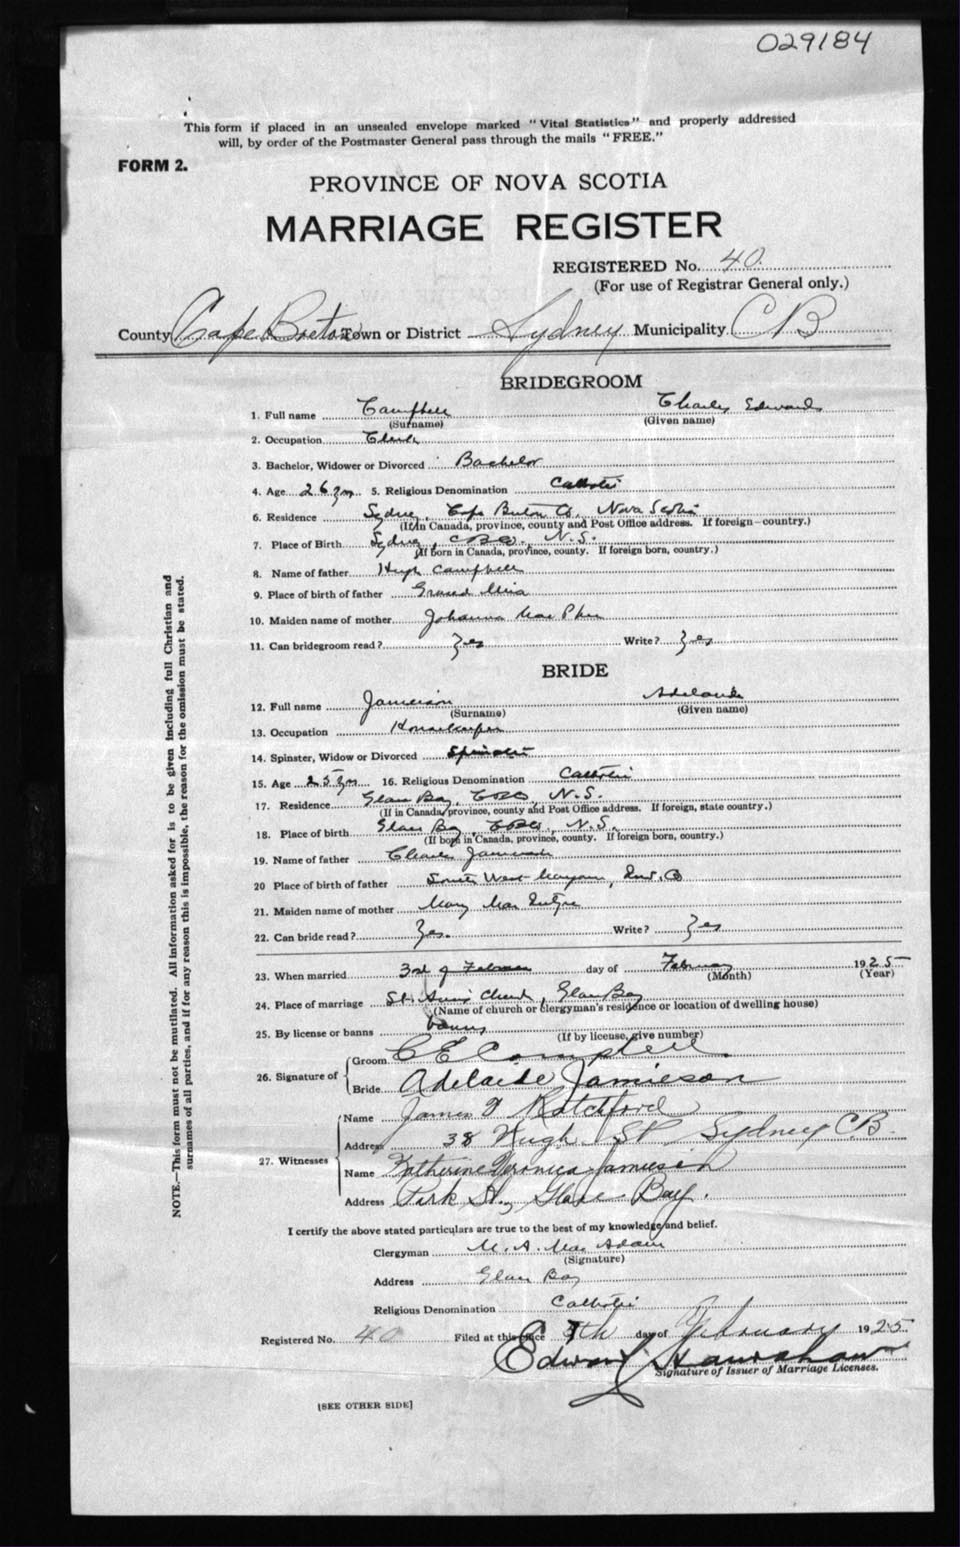 029184
This form if placed in an unsealed envelope marked "Vital Statistics" and properly addressed
will, by order of the Postmaster General pass through the mails "FREE."
FORM 2.
PROVINCE OF NOVA SCOTIA
MARRIAGE REGISTER
REGISTERED No. 40.
(For use of Registrar General only.)
County Cape Breton Town or District Sydney Municipality CB
BRIDEGROOM
1. Full name Campbell Charles Edward
(Surname) (Given name)
2. Occupation Clerk
3. Bachelor, Widower or Divorced Bachelor
4. Age 26 yrs 5. Religious Denomination Catholic
6. Residence Sydney, Cape Breton Co, Nova Scotia
(If in Canada, province, county and Post Office address. If foreign—country.)
7. Place of Birth Sydney, N.S.
(If born in Canada, province, county. If foreign born, country.)
8. Name of father Hugh Campbell
9. Place of birth of father Grand Mira
10. Maiden name of mother Johanna Mac Phee
11. Can bridegroom read? Yes Write? Yes
BRIDE
12. Full name Jamieson Adelaide
(Surname) (Given name)
13. Occupation Housekeeper
14. Spinster, Widow or Divorced Spinster
15. Age 25 yrs 16. Religious Denomination Catholic
17. Residence Glace Bay, N.S.
(If in Canada, province, county and Post Office address. If foreign, state country.)
18. Place of birth Glace Bay, N.S.
(If born in Canada, province, county. If foreign born, country.)
19. Name of father Charles Jamieson
20 Place of birth of father South West Margaree, C.B
21. Maiden name of mother Mary Mac Intyre
22. Can bride read? Yes. Write? Yes
23. When married 3rd of February day of February 1925
(Month) (Year)
24. Place of marriage St. Ann's Church, Glace Bay
(Name of church or clergyman's residence or location of dwelling house)
25. By license or banns banns
(If by license, give number)
26. Signature of Groom C E Campbell
Bride Adelaide Jamieson
27. Witnesses Name James Ratchford
Address 38 Hugh St Sydney C.B.
Name Katherine Veronica Jamieson
Address Park St., Glace Bay.
I certify the above stated particulars are true to the best of my knowledge and belief.
Clergyman M. A. Mac Adam
(Signature)
Address Glace Bay
Religious Denomination Catholic
Registered No. 40 Filed at this office 7th day of February 1925
Edward
Signature of Issuer of Marriage Licenses.
[SEE OTHER SIDE]
NOTE.—This form must not be mutilated. All information asked for is to be given including full Christian and
surnames of all parties, and if for any reason this is impossible, the reason for the omission must be stated.